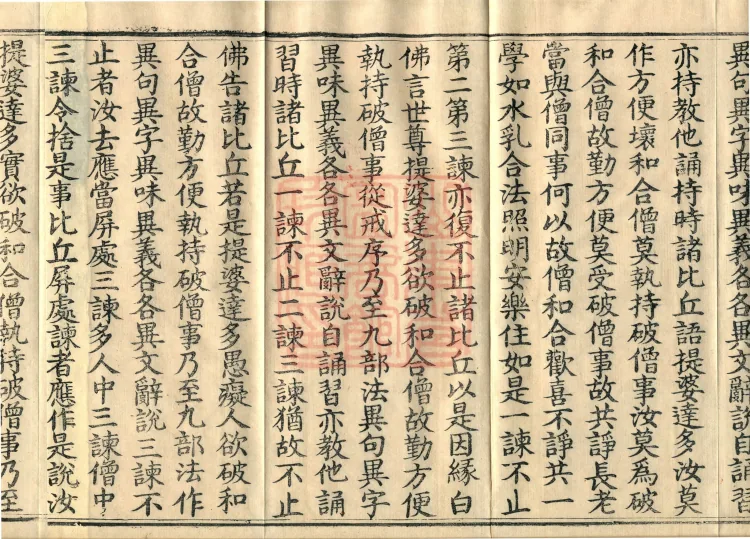 異句異字異味異義各各異文辭說自誦習
亦持教他誦持時諸比丘語提婆達多汝莫
作方便壞和合僧莫執持破僧事汝莫為破
和合僧故勤方便莫受破僧事故共諍長老
當與僧同事何以故僧和合歡喜不諍共一
學如水乳合法照明安樂住如是一諫不止
第二第三諫亦復不止諸比丘以是因緣白
佛言世尊提婆達多欲破和合僧故勤方便
執持破僧事從戒序乃至九部法異句異字
異味異義各各異文辭說自誦習亦教他誦
習時諸比丘一諫不止二諫三諫猶故不止
佛告諸比丘若是提婆達多愚癡人欲破和
合僧故勤方便執持破僧事乃至九部法作
異句異字異味異義各各異文辭說三諫不
止者汝去應當屏處三諫多人中三諫僧中
三諫令捨是事比丘屏處諫者應作是說汝
提婆達多實欲破和合僧執持破僧事乃至